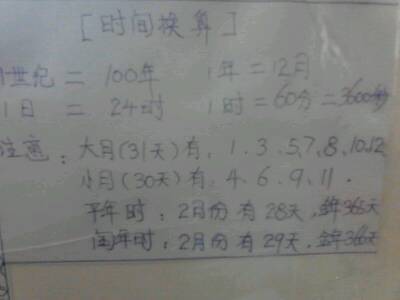 [时间换算]
1世纪 = 100年 1年 = 12月
1日 = 24时 1时 = 60分 = 3600秒
注意：大月(31天)有、1、3、5、7、8、10、12
小月(30天)有、4、6、9、11.
平年时：2月份有28天，全年365天
闰年时：2月份有29天，全年366天